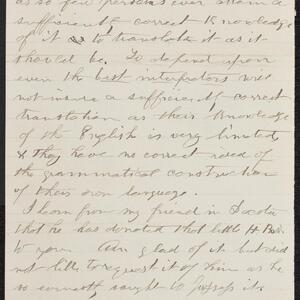 as so few persons ever attain a
sufficiently correct knowledge
of it to translate it as it
should be. To depend upon
even the best interpreters will
not insure a sufficiently correct
translation as their knowledge
of the English is very limited
& they have no correct idea of
the grammatical construction
of their own language.
I learn from my friend in
that he has donated that little H
to you. Am glad of it but did
not like to request it of him as he
so earnestly sought to possess it.